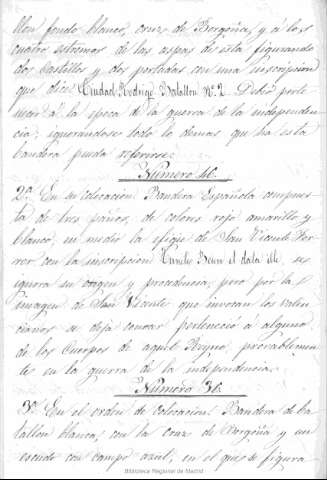 llón fondo blanco, cruz de Borgoña, y á los
cuatro estremos de las aspas de ésta figurando
dos Castillos y dos portadas con una inscripcion
que dice: Ciudad-Rodrigo Batallon Nº 2. Debió perte-
necer á la época de la guerra de la independen-
cia, ignorándose todo lo demas que ha esta
bandera pueda referirse.
Número 46.
2ª En su colocacion. Bandera Española compues-
ta de tres paños, de colores rojo amarillo y
blanco, en medio la efigie de San Vicente Fer-
rer con la inscripcion: Timete Deum el data ille, se
ignora su origen y procedencia, pero por la
imágen de San Vicente que invocan los valen-
cianos se deja conocer perteneció á alguno
de los Cuerpos de aquel Reyno, provablemen-
te en la guerra de la independencia.
Número 36.
3ª En el orden de colocacion. Bandera de ba-
tallon blanca, con la cruz de Borgoña y un
escudo con campo azul, en el que se figura
Biblioteca Regional de Madrid